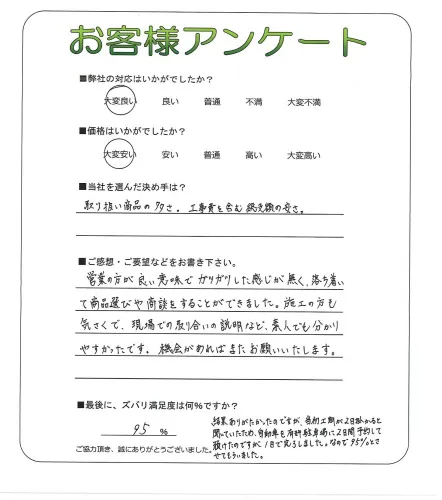 お客様アンケート
■弊社の対応はいかがでしたか？
大変良い 良い 普通 不満 大変不満
■価格はいかがでしたか？
大変安い 安い 普通 高い 大変高い
■当社を選んだ決め手は？
取り扱い商品の多さ。工事費を含む総売額の安さ。
■ご感想・ご要望などをお書き下さい。
営業の方が良い意味でガツガツした感じが無く、落ち着い
て商品選びや商談をすることができました。施工の方も
気さくで、現場での取り合いの説明など、素人でも分かり
やすかったです。機会があればまたお願いいたします。
■最後に、ズバリ満足度は何％ですか？
95 %
結果ありがたかったのですが、当初工期が2日掛かると
聞いていたため、自動車を有料駐車場に2日間予約して
預けたのですが1日で完了しました。なので95%とさ
せてもらいました。
ご協力頂き、誠にありがとうございました。